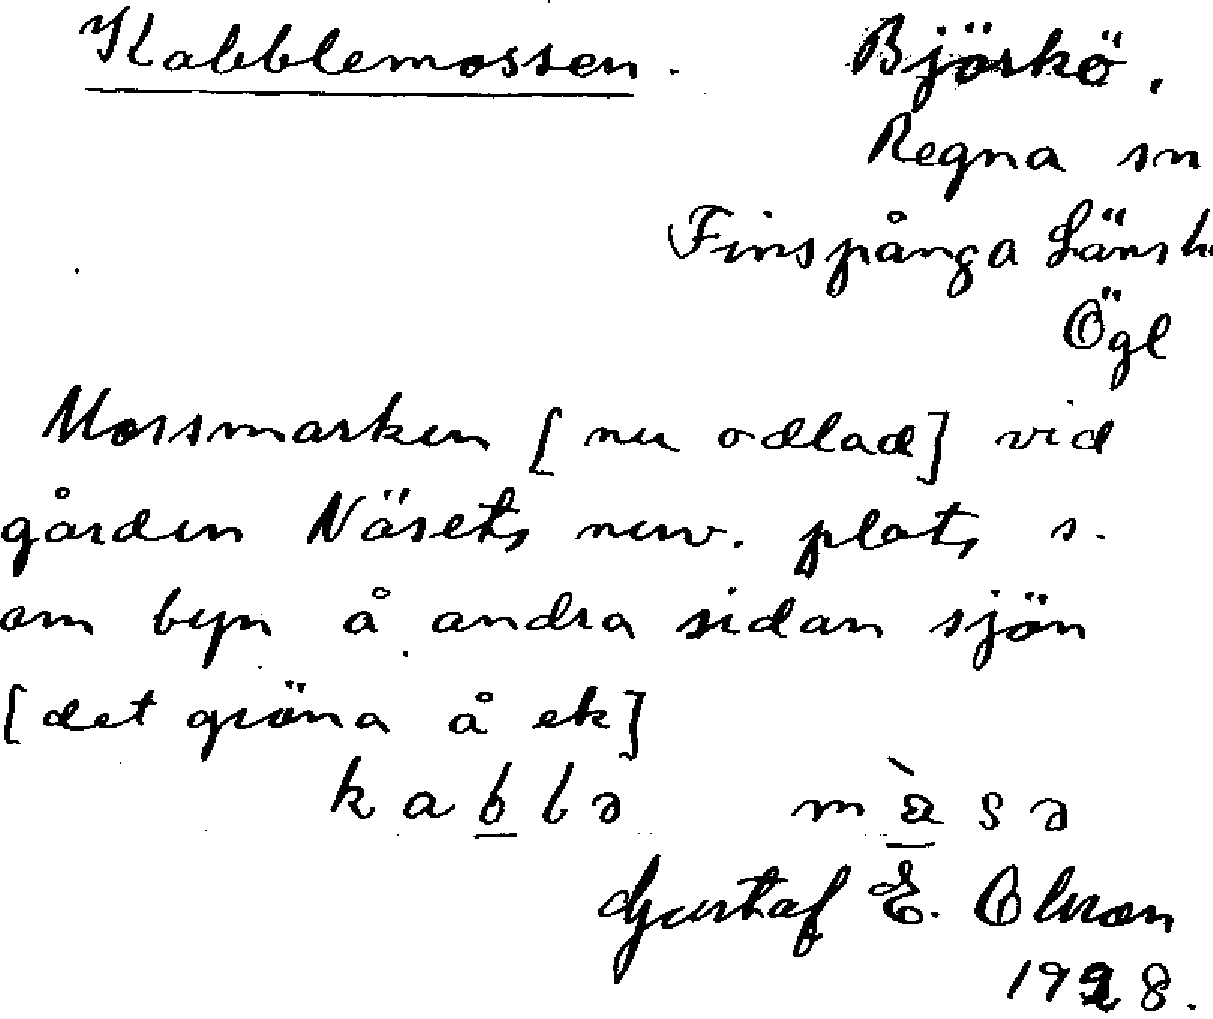 Kabblemossen. Björkö.
Regna sn
Finspånga Länsh
Ögl
Mossmarken [nu odlad] vid
gården Näset, nuv. plats, s.
om byn å andra sidan sjön
[det gröna å ek]
kabblə
Gustaf E. Olsson
1928.